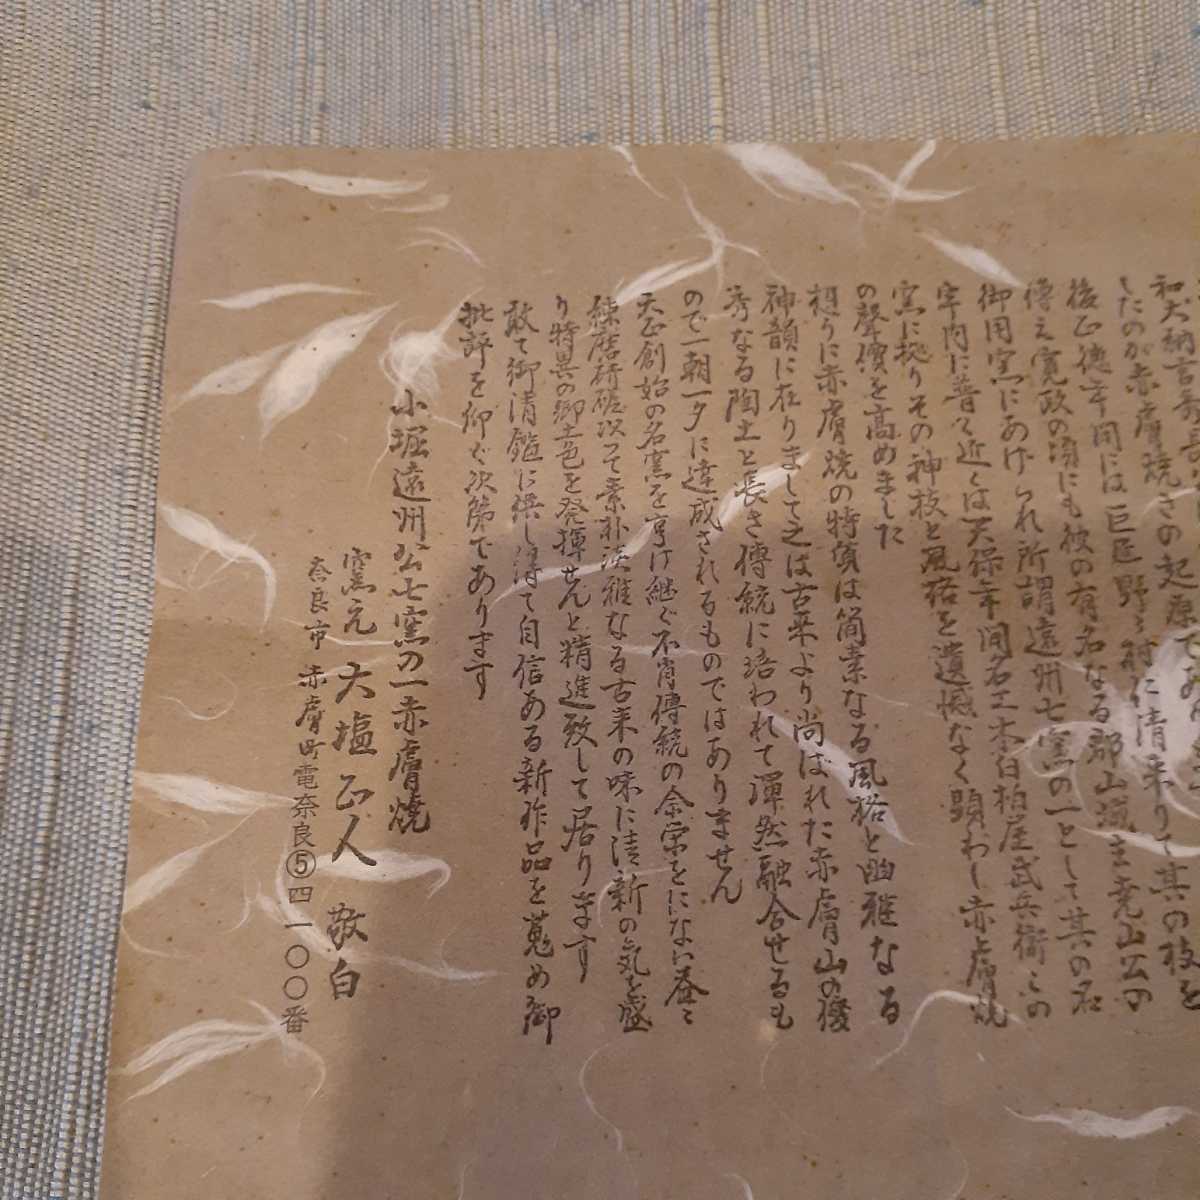 和大納言秀長
したのが赤膚焼きの起原であ
後正徳年間には巨匠野々村仁清来りて其の技を
傳え寛政の頃にも彼の有名なる郡山城主堯山公の
御用窯にあげられ所謂遠州七窯の一として其の名
宇内に普く近くは天保年間名工木白柏屋武兵衛この
窯に拠りその神技と風格を遺憾なく顕わし赤膚焼
の聲價を高めました
想うに赤膚焼の特負は簡素なる風格と幽雅なる
神韻に在りまして之は古来より尚ばれた赤膚山の優
秀なる陶土と長き傳統に培われて渾然融合せるも
ので一朝一夕に達成されるものではありません
天正創始の名窯を享け継ぐ不肖傳統の余栄をにない益々
錬磨研磋以って素朴淡雅なる古来の味に清新の気を盛
り特異の郷土色を発揮せんと精進致して居ります
敢て御清鑑に供し得て自信ある新作品を蒐め御
批評を仰ぐ次第であります
小堀遠州公七窯の一赤膚焼
窯元 大塩正人 敬白
奈良市赤膚町電奈良⑤四一〇〇番